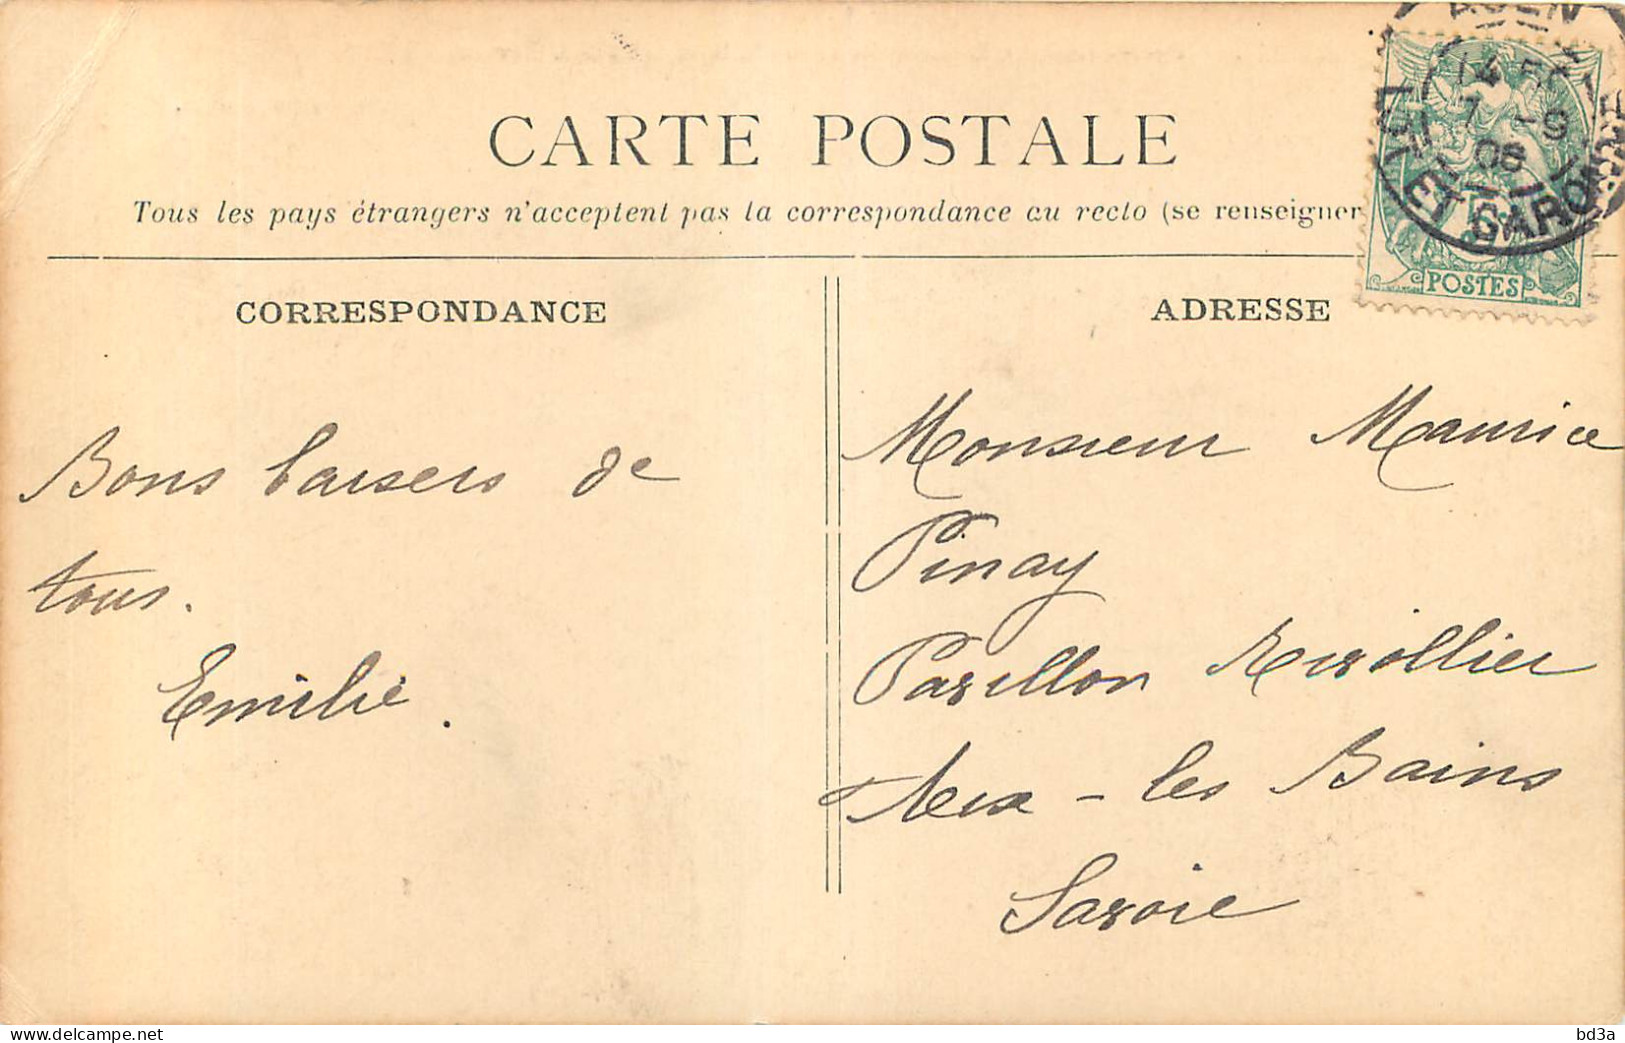 CARTE POSTALE
Tous les pays étrangers n'acceptent pas la correspondance au recto (se renseigner
CORRESPONDANCE
ADRESSE
AGEN
14
7 -9
08
LOT ET GARONNE
POSTES
Bons baisers de
tous.
Emilie.
Monsieur Maurice
Pinay
Pavillon
Aix-les Bains
Savoie
www.delcampe.net
bd3a